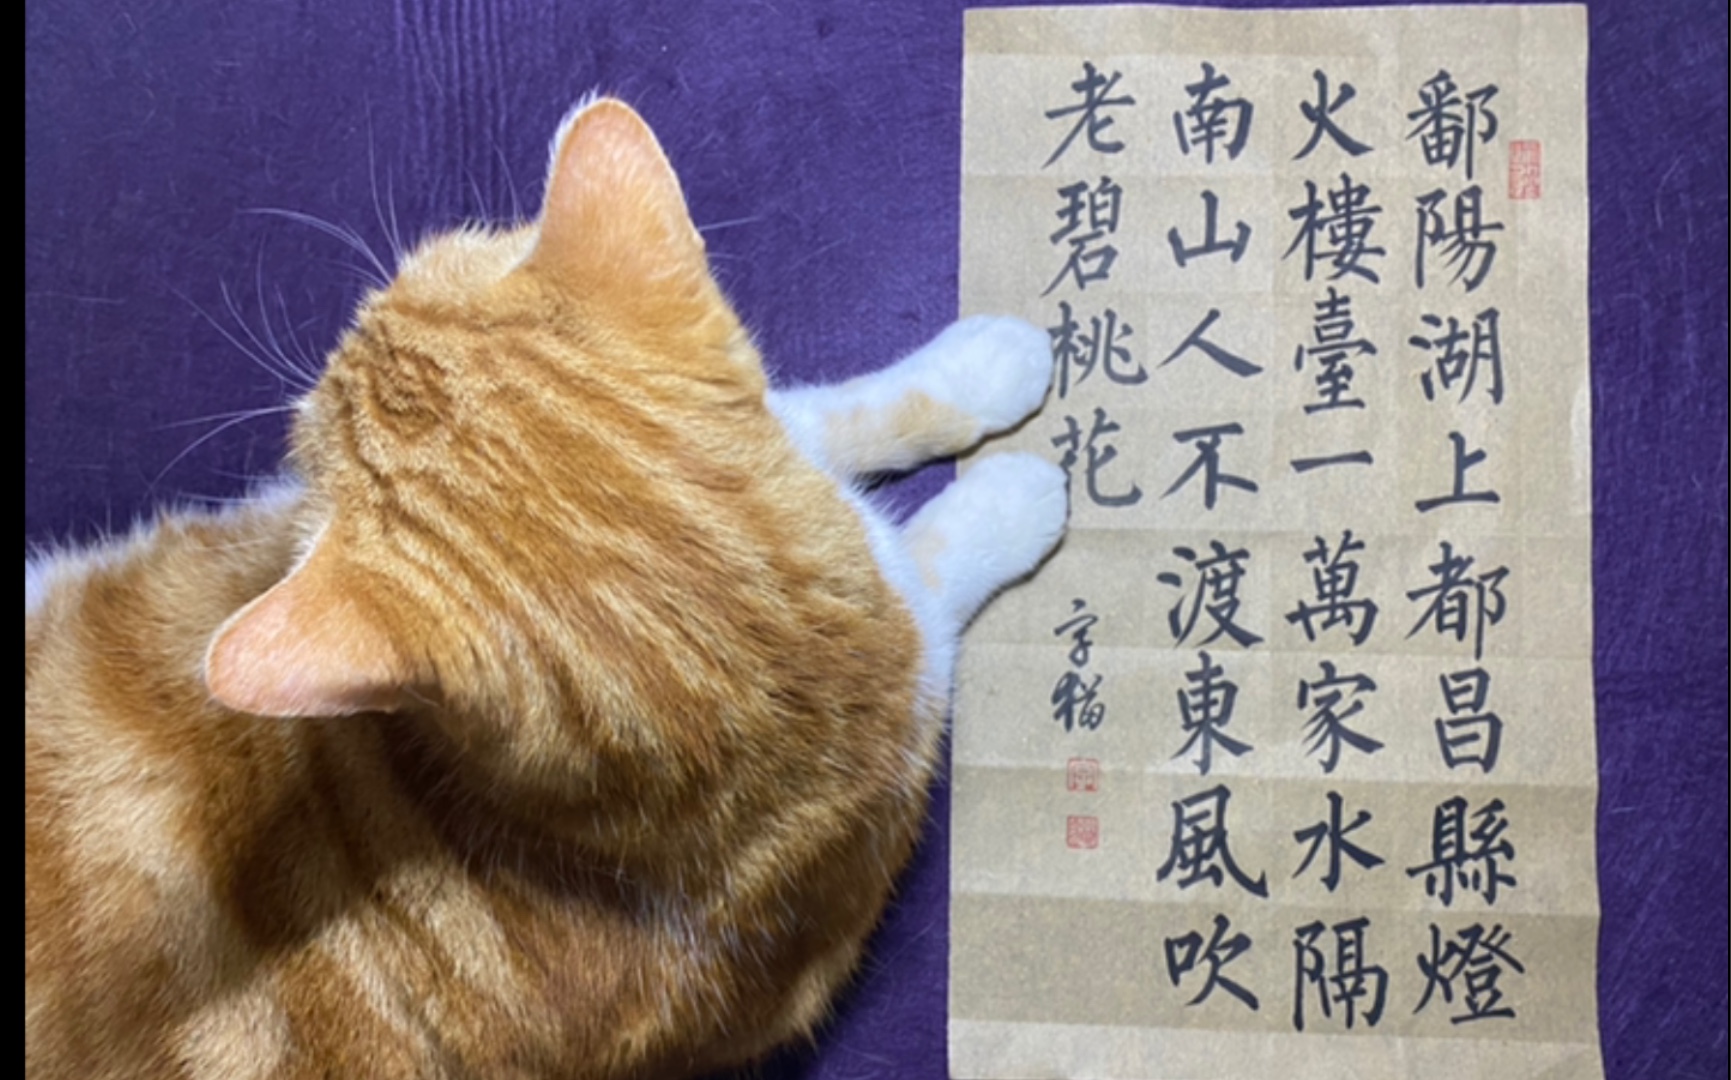 鄱陽湖上都昌縣燈
火樓臺一萬家水隔
南山人不渡東風吹
老碧桃花
字貓